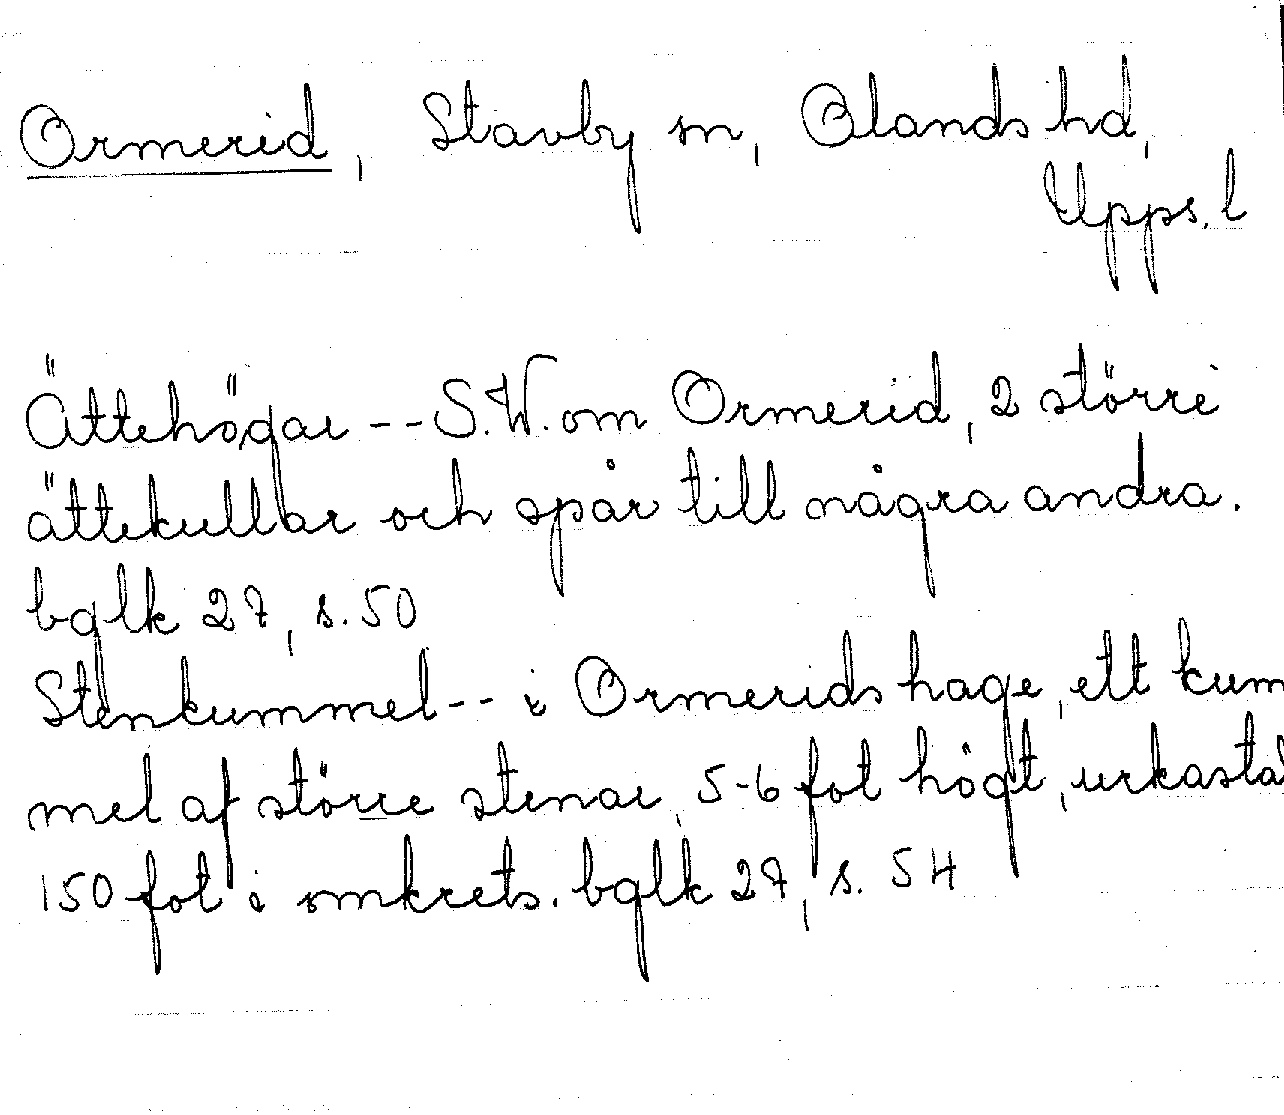 Ormerid, Stavby sn, Olands hd,
Upps. l
Ättehögar -- S.W. om Ormerid, 2 större
ättekullar och spår till några andra.
bglk 27, s. 50
Stenkummel -- i Ormerids hage, ett kum
mel af större stenar, 5-6 fot högt, urkastat
150 fot i omkrets. bglk 27, s. 54